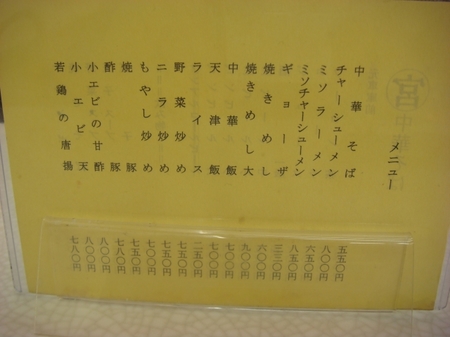 メニュー
中華そば 五五〇円
チャーシューメン 八〇〇円
ミソラーメン 六五〇円
ミソチャーシューメン 八五〇円
ギョーザ 三三〇円
焼きめし 六〇〇円
焼きめし大 九〇〇円
中華飯 七〇〇円
天津飯 七〇〇円
ライス 二五〇円
野菜炒め 七五〇円
ニラ炒め 七五〇円
もやし炒め 七〇〇円
焼豚 七五〇円
酢豚 七八〇円
小エビの甘酢 八〇〇円
小エビ天 八〇〇円
若鶏の唐揚 七八〇円